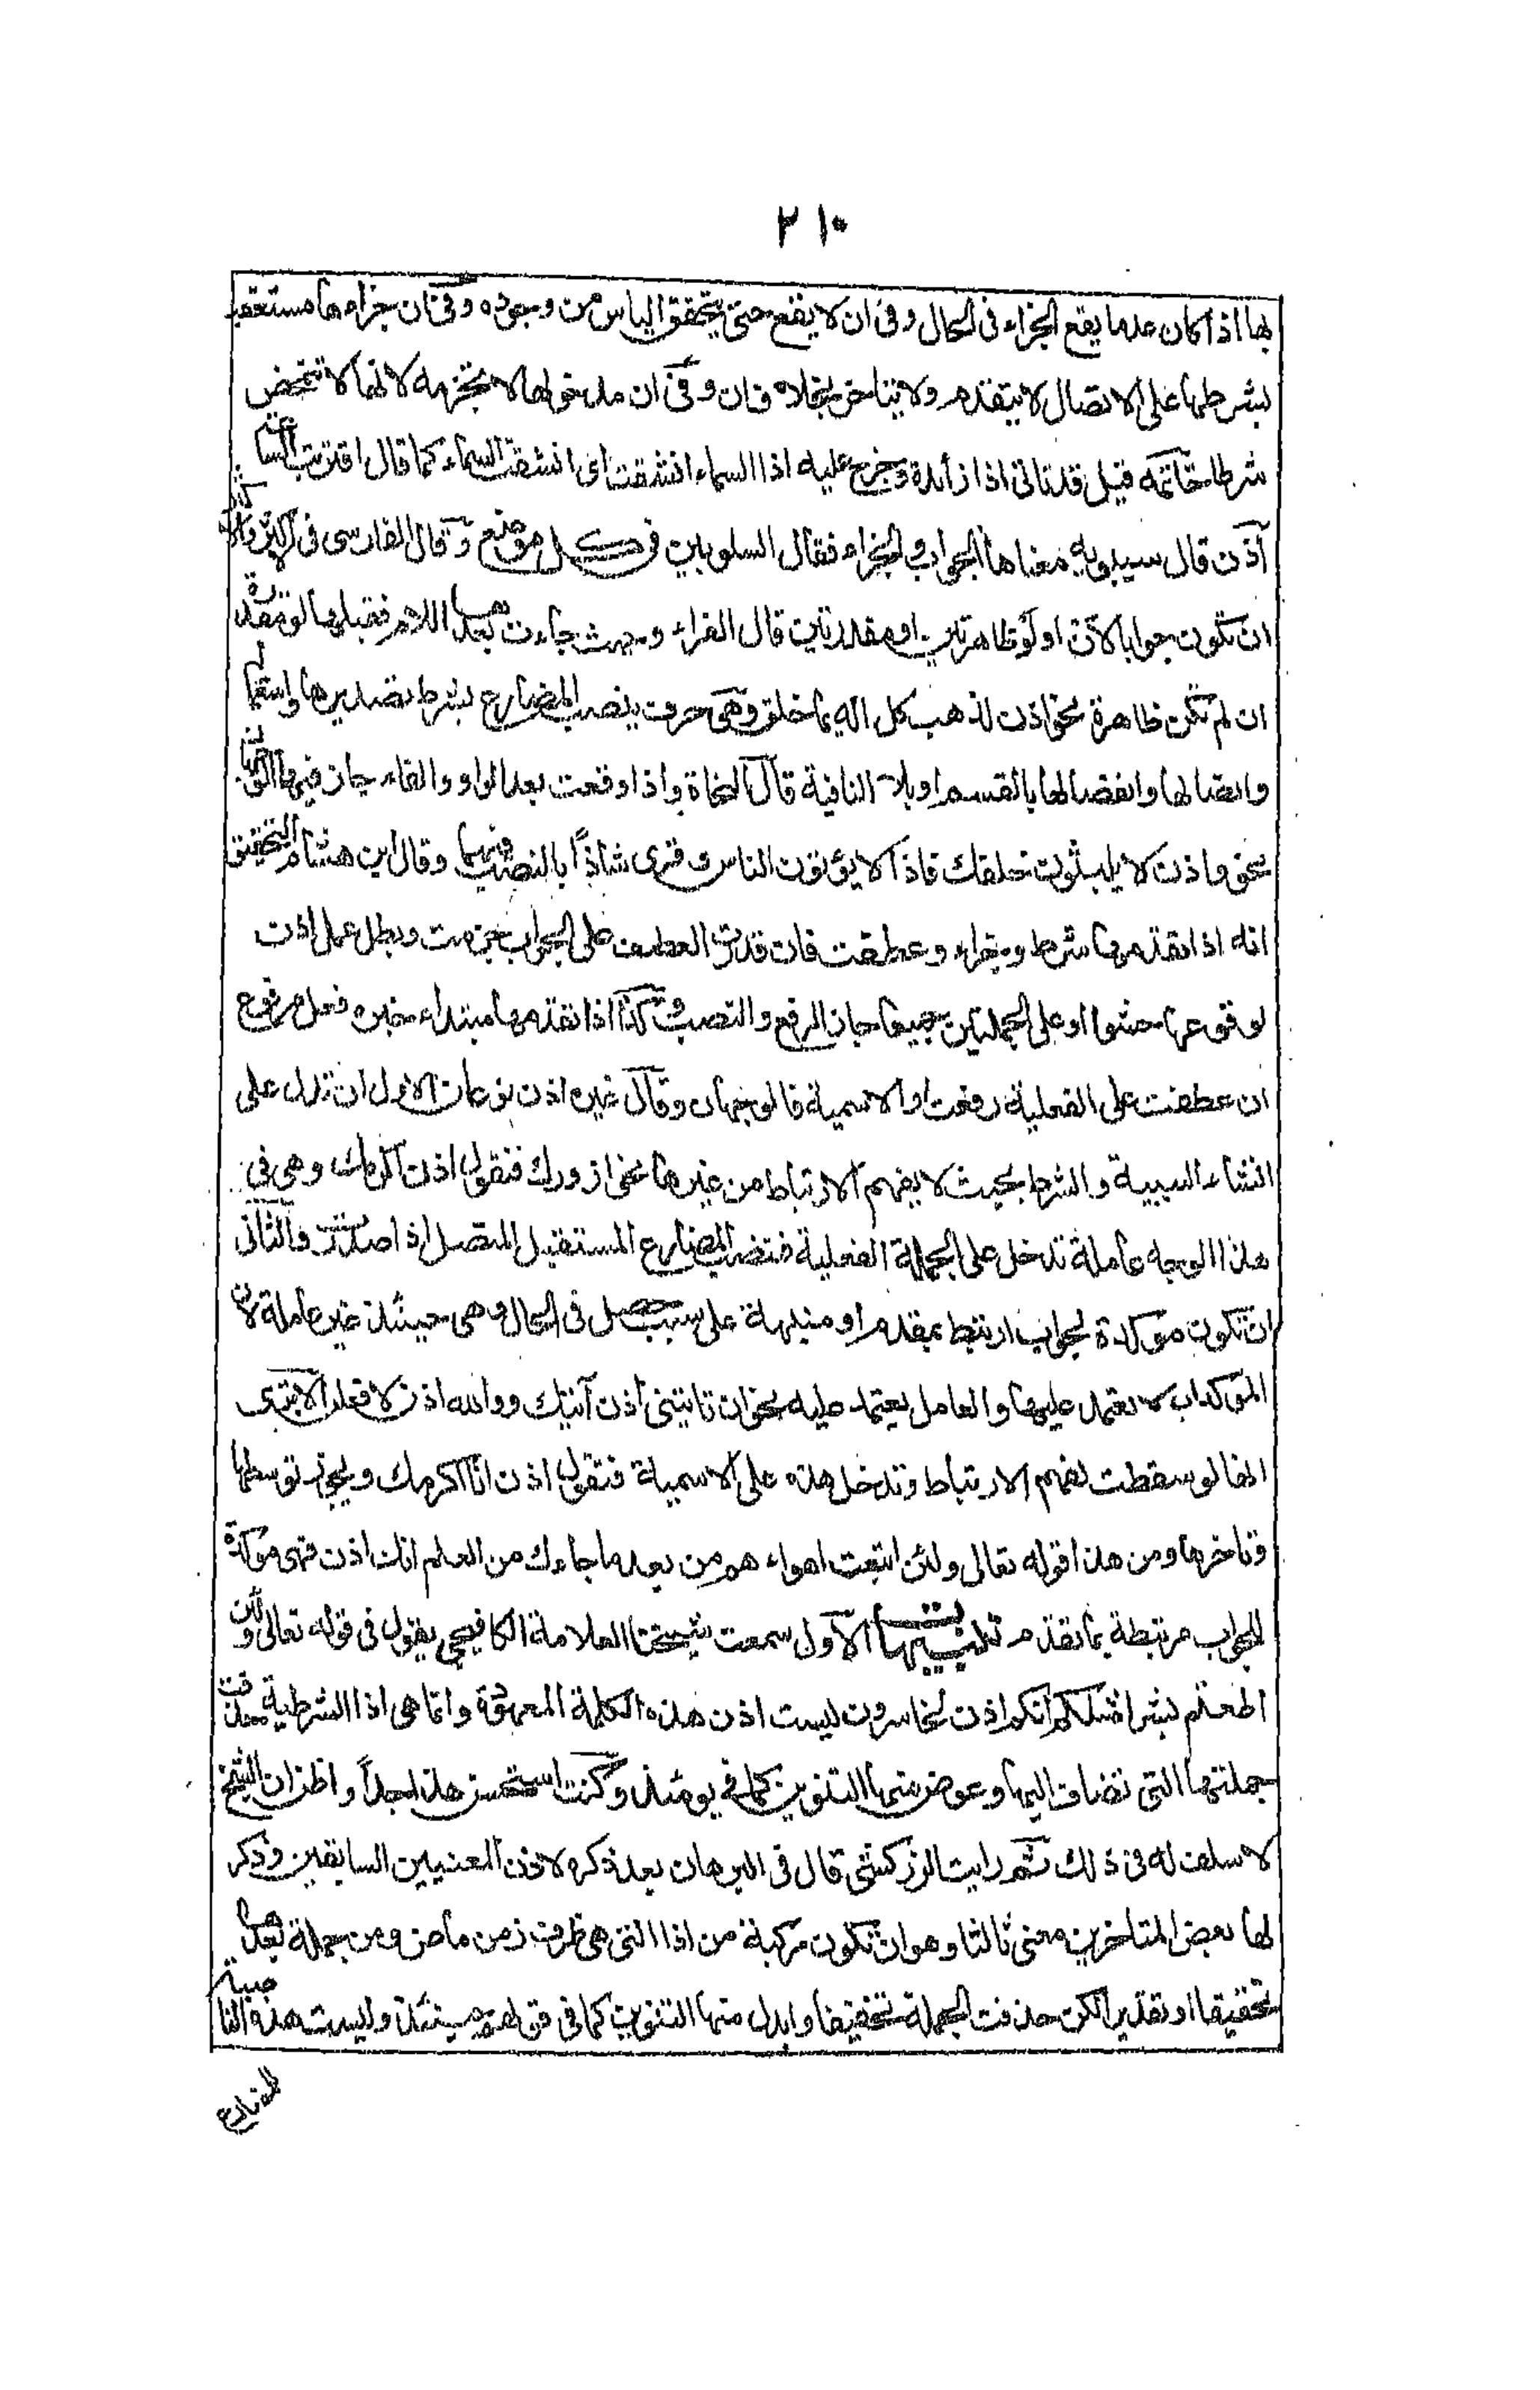 ٢١٠
بها اذا كان عدما يقع الجزاء فى الحال وفى ان لا يقع حتى يتحقق الياس من وجوده وفى ان جزاءها مستعقب
لشرطها على الاتصال لا يتقدم ولا يتاخر بخلاف ان وفى ان مدخولها لا تجزمه لانها لا تتمحض
شرطا خاتمه قيل قد تاتى اذا زائدة وخرج عليه اذا السماء انشقت اى انشقت السماء كما قال اقتربت الساعة
آذن قال سيبويه معناها الجواب والجزاء فقال الشلوبين فى كل موضع وقال الفارسى فى الاكثر والاكثر
ان تكون جوابا لان او لو ظاهرتين او مقدرتين قال الفراء وحيث جاءت بعدها اللام فقبلها لو مقدرة
ان لم تكن ظاهرة نحو اذن لذهب كل اله بما خلق وهى حرف ينصب المضارع بشرط تصديرها واستقباله
واتصالها وانفصالها بالقسم او بلا النافية قال النحاة واذا وقعت بعد الواو والفاء جاز فيها الوجهان
نحو واذن لا يلبثون خلفك فاذا لا يؤتون الناس وقرى شاذا بالنصب فيهما وقال ابن هشام التحقيق
انه اذا تقدمها شرط وجزاء وعطفت فان قدرت العطف على الجواب جزمت وبطل عمل اذن
لوقوعها حشوا او على الجملتين جميعا جاز الرفع والنصب وكذا اذا تقدمها مبتداء خبره فعل مرفوع
ان عطفت على الفعلية رفعت او الاسمية فالوجهان وقال غيره اذن نوعان الاول ان تدل على
انشاء السببية والشرط بحيث لا يفهم الارتباط من غيرها نحو ازورك فتقول اذن اكرمك وهى فى
هذا الوجه عاملة تدخل على الجملة الفعلية فتنصب المضارع المستقبل المتصل اذا صدرت والثانى
ان تكون مؤكدة لجواب ارتبط بمقدم او منبهة على سبب حصل فى الحال وهى حينئذ غير عاملة لان
المؤكدات لا يعتمد عليها والعامل يعتمد عليه نحو ان تاتينى اذن آتيك ووالله اذن لافعلن الا ترى
انها لو سقطت لفهم الارتباط وتدخل هذه على الاسمية فتقول اذن انا اكرمك ويجوز توسطها
وتاخرها ومن هذا قوله تعالى ولئن اتبعت اهواءهم من بعد ما جاءك من العلم انك اذن فهى مؤكدة
للجواب مرتبطة بما تقدم تنبيهان الاول سمعت شيخنا العلامة الكافيجى يقول فى قوله تعالى ولئن
اطعتم بشرا مثلكم انكم اذن لخاسرون ليست اذن هذه الكلمة المعهودة وانما هى اذا الشرطية حذفت
جملتها التى تضاف اليها وعوض منها التنوين كما فى يومئذ وكنت استحسن هذا جداً واظن ان الشيخ
لا سلف له فى ذلك ثم رايت الزركشى قال فى البرهان بعد ذكره لاذن المعنيين السابقين وذكر
لها بعض المتاخرين معنى ثالثا وهو ان تكون مركبة من اذا التى هى ظرف زمن ماض ومن جملة بعدها
تحقيقا او تقديرا لكن حذفت الجملة تخفيفا وابدل منها التنوين كما فى قولهم حينئذ وليست هذه الناصبة